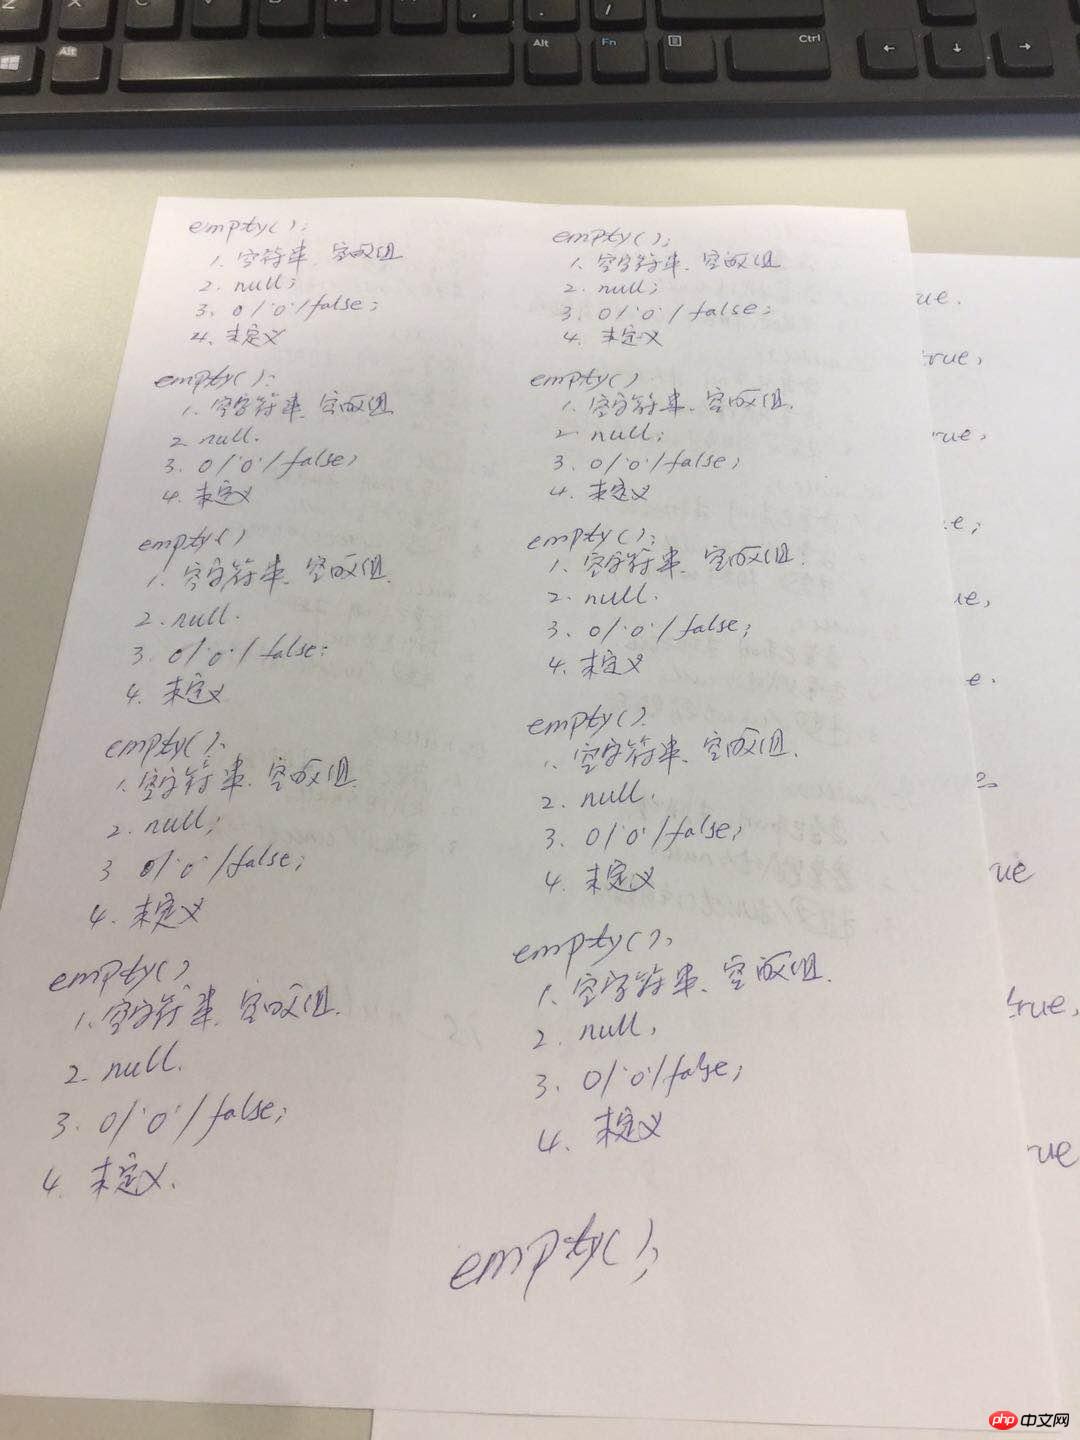 empty();
1. 空符串、空数组
2. null;
3. 0/'0'/false;
4. 未定义
empty();
1. 空字符串、空数组
2. null.
3. 0/'0'/false;
4. 未定义
empty()
1. 空字符串、空数组
2. null.
3. 0/'0'/false;
4. 未定义
empty();
1. 空字符串、空数组
2. null;
3 0/'0'/false;
4. 未定义
empty()
1. 空字符串、空数组.
2. null.
3. 0/'0'/false;
4. 未定义.
empty();
1. 空字符串、空数组
2. null;
3. 0/'0'/false;
4. 未定义
empty()
1. 空字符串、空数组.
2. null;
3. 0/'0'/false;
4. 未定义
empty();
1. 空字符串、空数组.
2. null.
3. 0/'0'/false;
4. 未定义
empty().
1. 空字符串、空数组.
2. null.
3. 0/'0'/false;
4. 未定义
empty();
1. 空字符串、空数组.
2. null,
3. 0/'0'/false;
4. 未定义
empty();
ue.
true,
rue,
e;
ue,
e.
ue
true,
rue
Z X C
Alt
Alt Fn Ctrl
← ↓ →
php 中文网